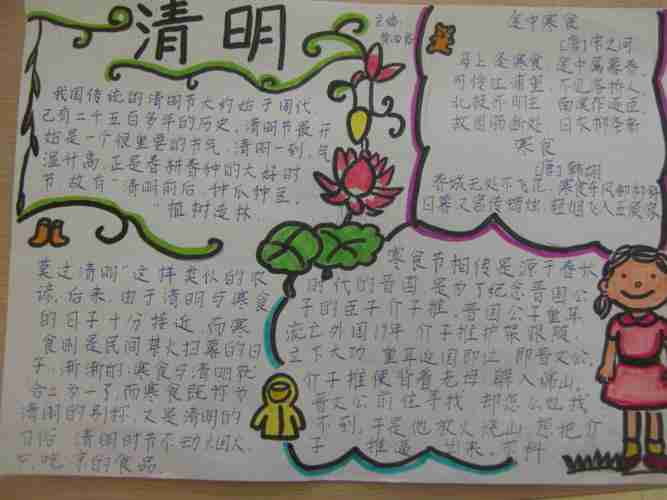 清明
主编
我国传统的清明节大约始于周代,
已有二千五百多年的历史,清明节最开
始是一个很重要的节气,清明一到,气
温升高,正是春耕春种的大好时
节,故有"清明前后,种瓜种豆,
植树造林,
莫过清明"这样类似的农
谚,后来,由于清明与寒食
的日子十分接近,而寒
食则是民间禁火扫墓的日
子,渐渐的,寒食与清明就
合二为一了,而寒食既称为
清明的别称,又是清明的
习俗,清明时节不动烟火,
只吃凉的食品
途中寒食
马上逢寒食,途中属暮春,
可怜江浦望,不见洛桥人,
北极怀明主,南溟作逐臣,
故园肠断处,日夜柳条新
寒食
[唐]韩翃
春城无处不飞花,寒食东风御柳斜
日暮汉宫传蜡烛,轻烟飞入五侯家
寒食节相传是源于春秋
时代的晋国,是为了纪念晋国公
子的臣子介子推,晋国公子重耳
流亡外国19年,介子推护驾跟随,
立下大功,重耳返国即位,即晋文公,
介子推便背着老母,躲入绵山,
晋文公前往寻找,却怎么也找
不到,于是他放火烧山,想把介
子推逼出来,不料